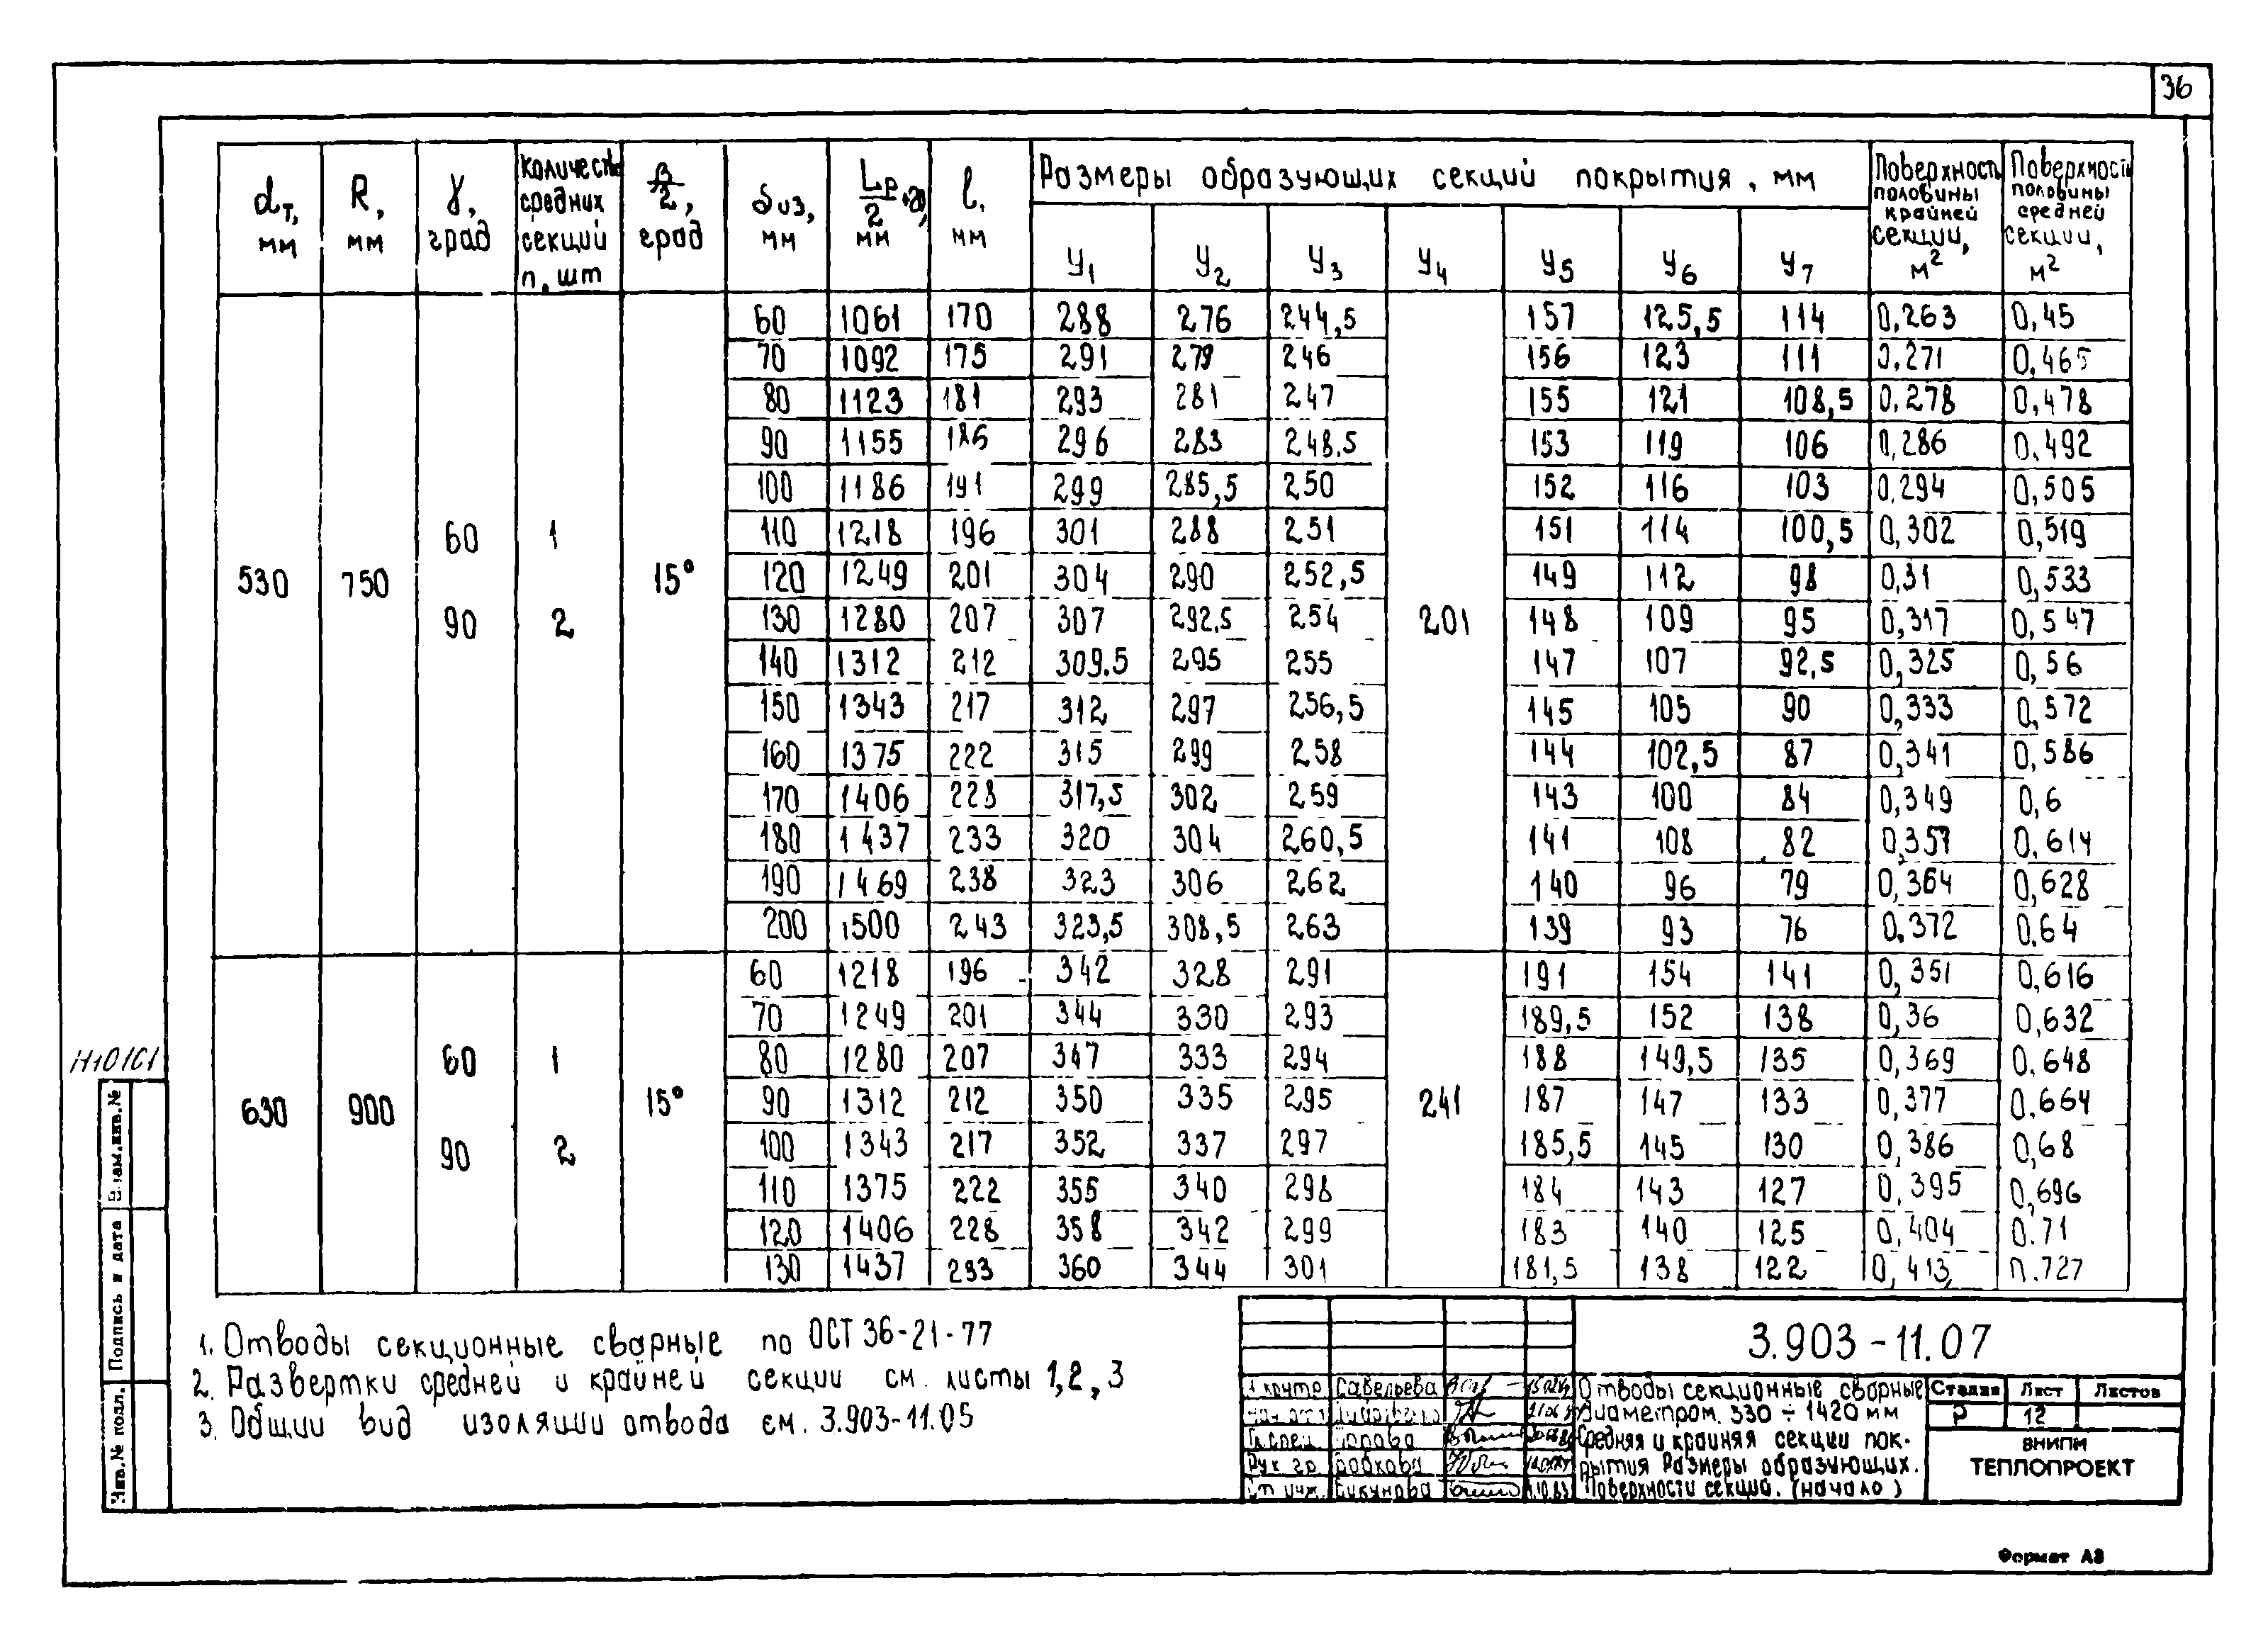 36
dт, мм | R, мм | γ, град | количество средних секций п, шт | β/2, град | δиз, мм | Lр/2 +20, мм | l, мм | Размеры образующих секций покрытия, мм | Поверхность половины крайней секции, м² | Поверхность половины средней секции, м²
У1 | У2 | У3 | У4 | У5 | У6 | У7
530 | 750 | 60 | 1 | 15°
90 | 2
201
60 | 1061 | 170 | 288 | 276 | 244,5 | 157 | 125,5 | 114 | 0,263 | 0,45
70 | 1092 | 175 | 291 | 279 | 246 | 156 | 123 | 111 | 0,271 | 0,465
80 | 1123 | 181 | 293 | 281 | 247 | 155 | 121 | 108,5 | 0,278 | 0,478
90 | 1155 | 186 | 296 | 283 | 248.5 | 153 | 119 | 106 | 0,286 | 0.492
100 | 1186 | 191 | 299 | 285,5 | 250 | 152 | 116 | 103 | 0.294 | 0,505
110 | 1218 | 196 | 301 | 288 | 251 | 151 | 114 | 100,5 | 0,302 | 0,519
120 | 1249 | 201 | 304 | 290 | 252,5 | 149 | 112 | 98 | 0,31 | 0,533
130 | 1280 | 207 | 307 | 292,5 | 254 | 148 | 109 | 95 | 0,317 | 0,547
140 | 1312 | 212 | 309.5 | 295 | 255 | 147 | 107 | 92,5 | 0,325 | 0,56
150 | 1343 | 217 | 312 | 297 | 256,5 | 145 | 105 | 90 | 0,333 | 0,572
160 | 1375 | 222 | 315 | 299 | 258 | 144 | 102,5 | 87 | 0,341 | 0,586
170 | 1406 | 228 | 317,5 | 302 | 259 | 143 | 100 | 84 | 0,349 | 0,6
180 | 1437 | 233 | 320 | 304 | 260,5 | 141 | 108 | 82 | 0,357 | 0,614
190 | 1469 | 238 | 323 | 306 | 262 | 140 | 96 | 79 | 0,364 | 0,628
200 | 1500 | 243 | 323,5 | 308,5 | 263 | 139 | 93 | 76 | 0.372 | 0.64
630 | 900 | 60 | 1 | 15°
90 | 2
241
60 | 1218 | 196 | 342 | 328 | 291 | 191 | 154 | 141 | 0,351 | 0,616
70 | 1249 | 201 | 344 | 330 | 293 | 189,5 | 152 | 138 | 0,36 | 0,632
80 | 1280 | 207 | 347 | 333 | 294 | 188 | 149,5 | 135 | 0,369 | 0.648
90 | 1312 | 212 | 350 | 335 | 295 | 187 | 147 | 133 | 0,377 | 0.664
100 | 1343 | 217 | 352 | 337 | 297 | 185,5 | 145 | 130 | 0,386 | 0,68
110 | 1375 | 222 | 355 | 340 | 298 | 184 | 143 | 127 | 0,395 | 0,696
120 | 1406 | 228 | 358 | 342 | 299 | 183 | 140 | 125 | 0,404 | 0.71
130 | 1437 | 233 | 360 | 344 | 301 | 181,5 | 138 | 122 | 0,413 | 0.727
1. Отводы секционные сварные по ОСТ 36-21-77
2. Развертки средней и крайней секции см. листы 1,2,3
3. Общии вид изоляции отвода см. 3.903-11.05
Взам.инв.№
Подпись и дата
Инв.№ подл.
3.903-11.07
Н.контр Савельева
Гл.спец
Рук гр. Бобкова
Ст инж.
Отводы секционные сварные
диаметром 530 ÷ 1420 мм
Средняя и крайняя секции пок-
рытия Размеры образующих.
Поверхности секций. (начало)
Стадия | Лист | Листов
Р | 12
ВНИПИ
ТЕПЛОПРОЕКТ
Формат А3